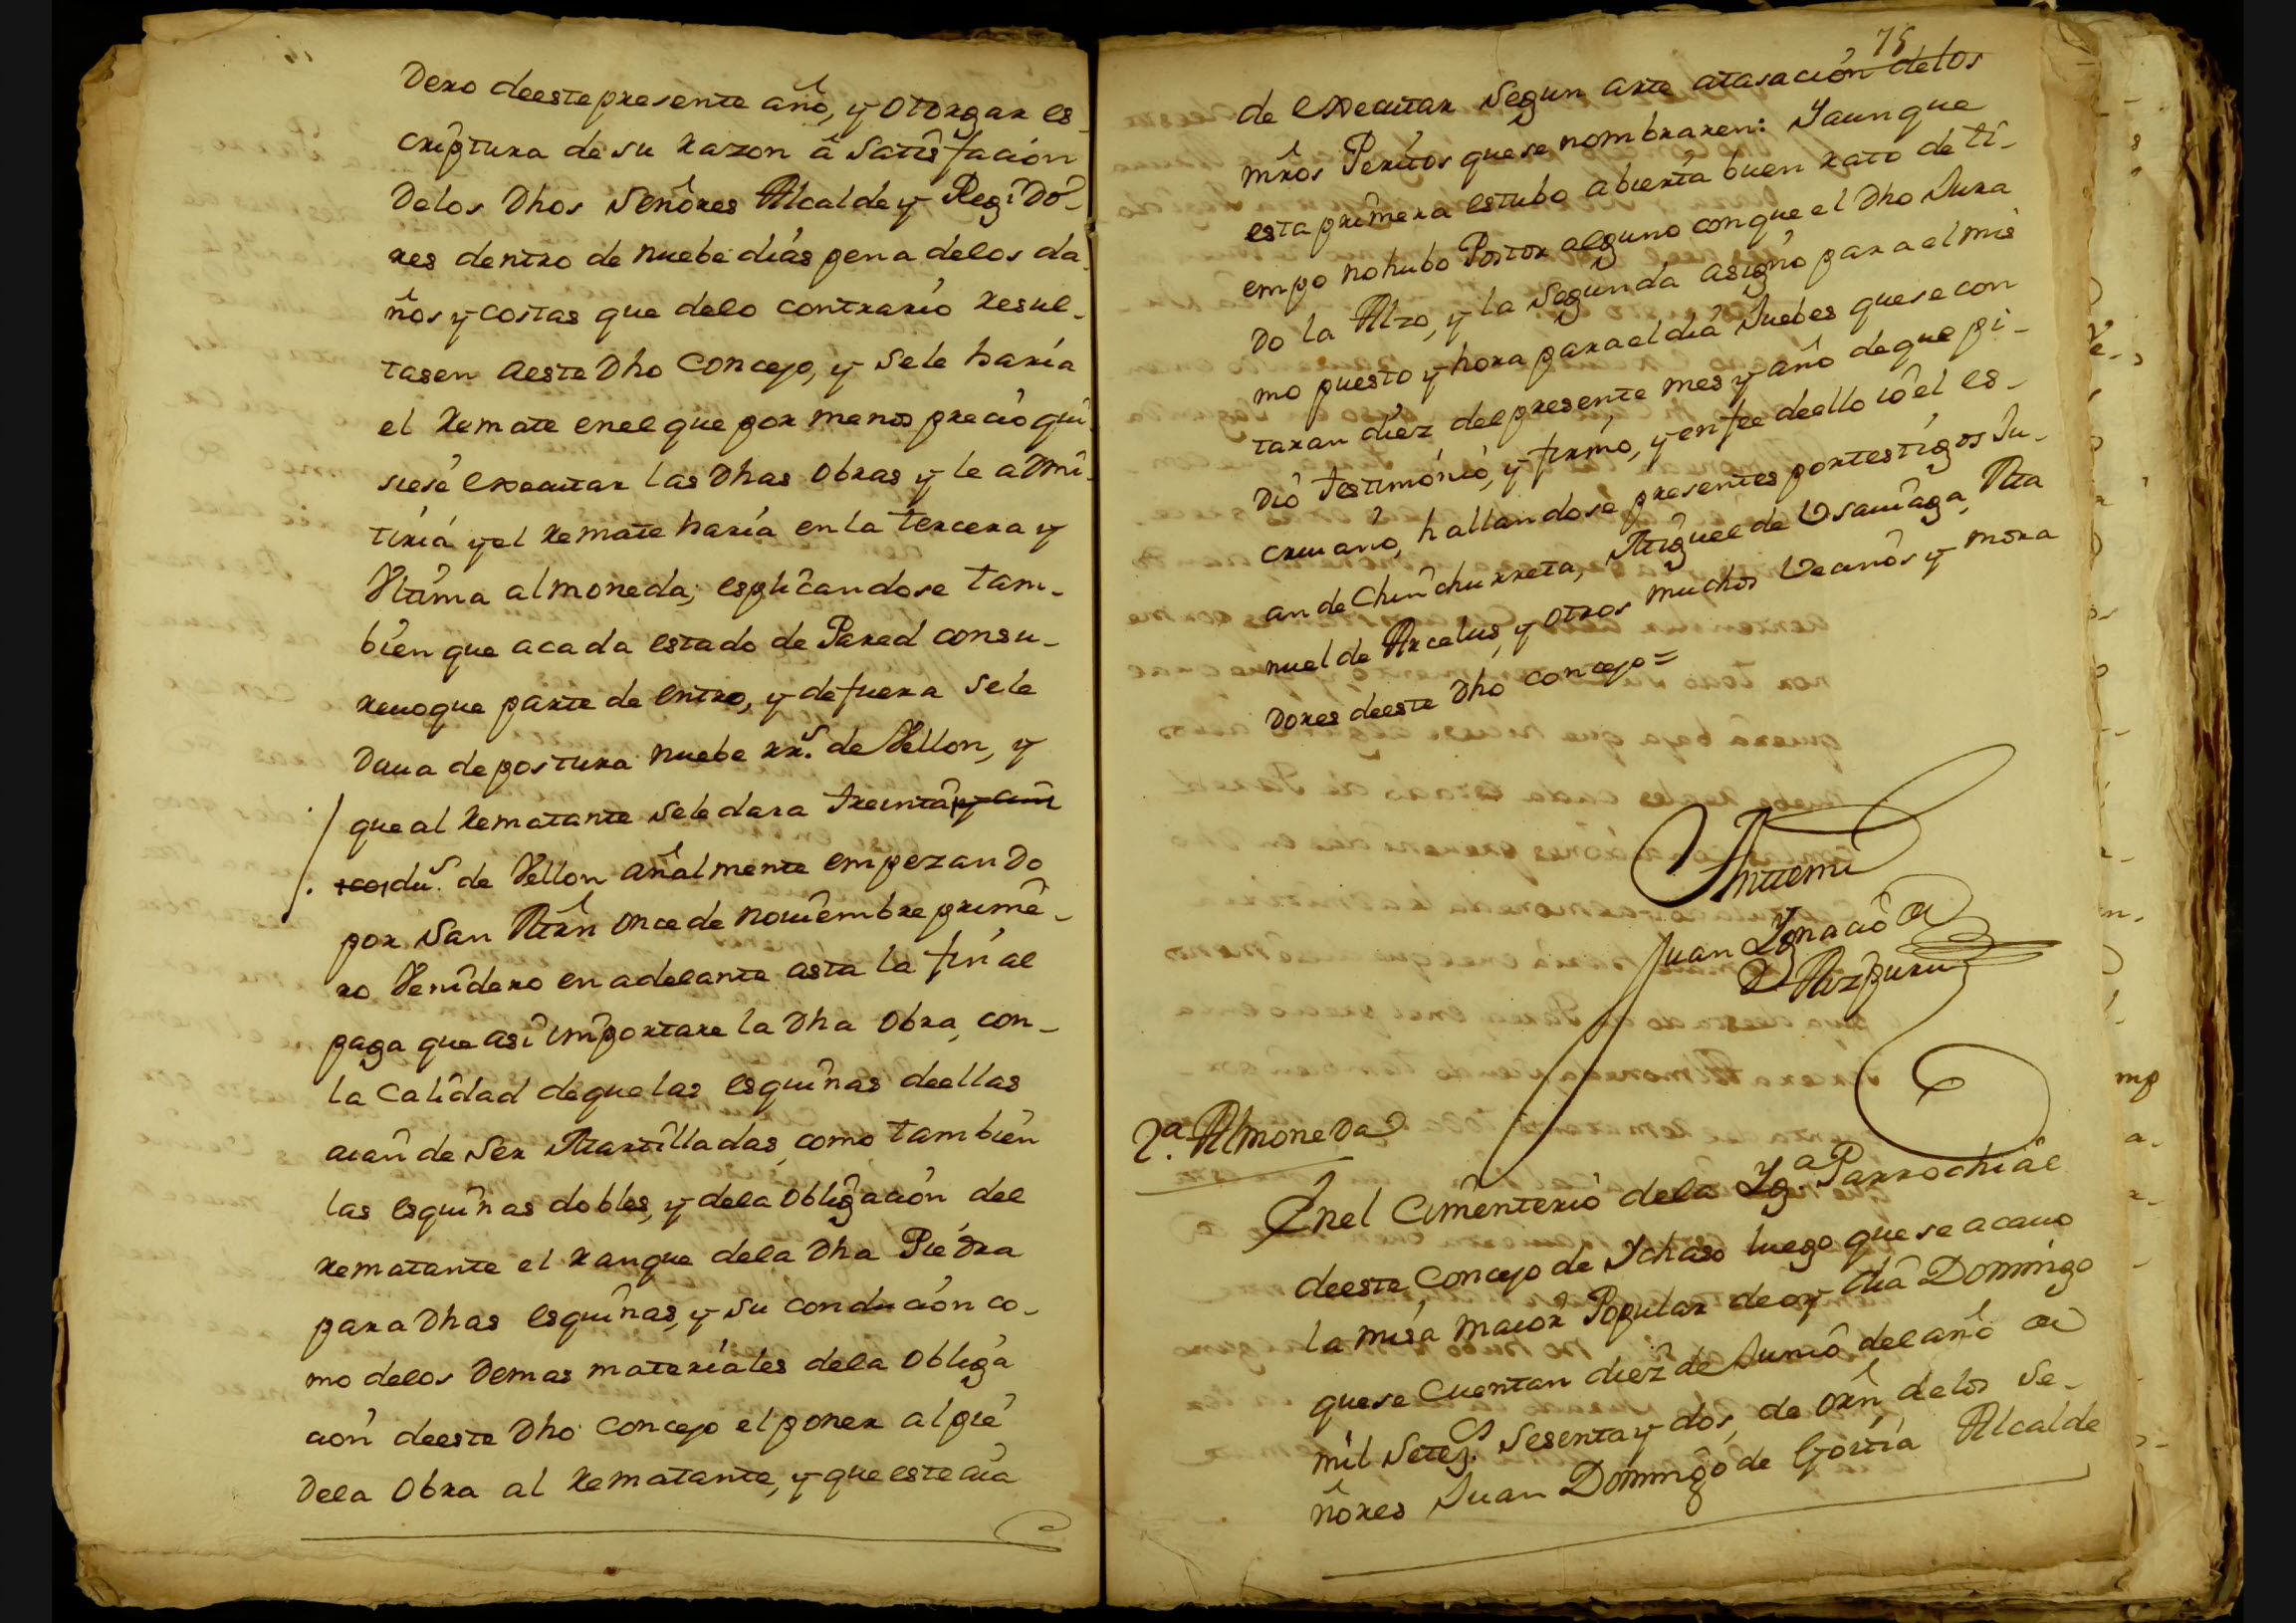 dero deeste presente año, y otorgar es-
criptura de su razon â Satisfación
delos dhos Señores Alcalde y Regido-
res dentro de nuebe días pena delos da-
ños y costas que delo contrario resul-
tasen aeste dho Concejo, y sele haría
el remate enel que por menos preció qui-
siese executar las dhas obras y le admi-
tiría y el remate haría en la tercera y
Vltima almoneda; esplicandose tam-
bien que acada estado de Pared consu-
renoque parte de entro, y defuera sele
daua depostura nuebe rrs. de Vellon, y
que al rematante sele dara treinta y cin
co dus. de Vellon añalmente empezando
por San Mrn once de nouiembre prime-
ro Venidero en adelante asta la final
paga que asi importare la dha obra, con-
la Calidad deque las esquinas deellas
aian de ser Martilladas, como tambien
las esquinas dobles, y dela obligación del
rematante el ranque dela dha Piedra
para dhas esquinas, y su condución co-
mo delos demas materiales dela obliga
ción deeste dho Concejo el poner al pie
dela obra al rematante, y que este aia
75
de executar segun arte atasación delos
mros Peritos quese nombraren: Y aunque
esta primera estubo abierta buen rato de ti-
empo nohubo Postor alguno conque el dho Jura
do la Alzo, y la segunda asigno para el mis
mo puesto y hora para el día Juebes quese con
taran diez del presente mes y año deque pi-
dió testimónió, y firmó, y en fee deello io el es-
criuano, hallandose presentes portestigos Ju-
an de Chinchurreta, Miguel de Vsamaga, Ma
nuel de Arcelus, y otros muchos Vecinos y mora
dores deeste dho concejo =
Antemi
Juan Ygnacio
de Aizpuru
2.a Almoneda
Enel Cimenterio dela Yg.a Parrochial
deeste Concejo de Ychaso luego que se acauo
la misa maior Popular de oy día Domingo
quese Cuentan diez de Junio del año de
mil Setez.s Sesenta y dos, de orn, delos Se-
ñores Juan Domingo de Gorria Alcalde